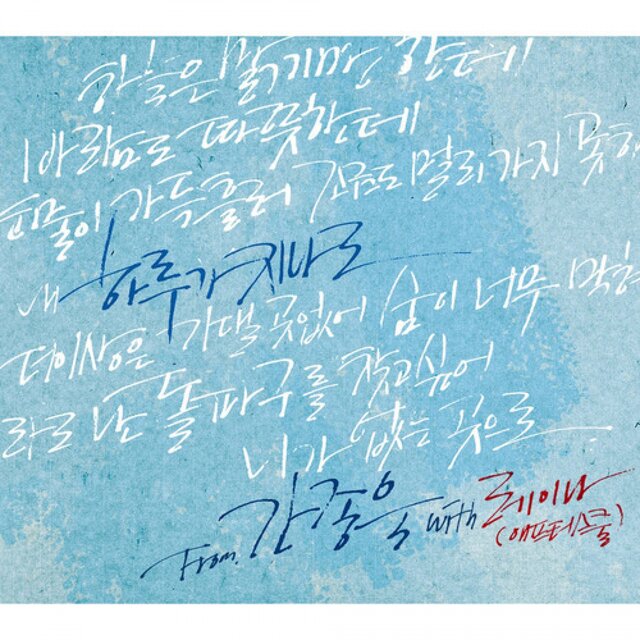 하늘은 맑기만 한데
바람도 따뜻한데
눈물이 가득흘러 걸음도 멀리 가지 못하
내 하루가 지나도
더이상은 기댈 곳없어 숨이 너무 막혀
라도 난 돌파구를 찾고싶어
니가 없는 곳으로
From. 간종욱 with 레이나
(애프터스쿨)